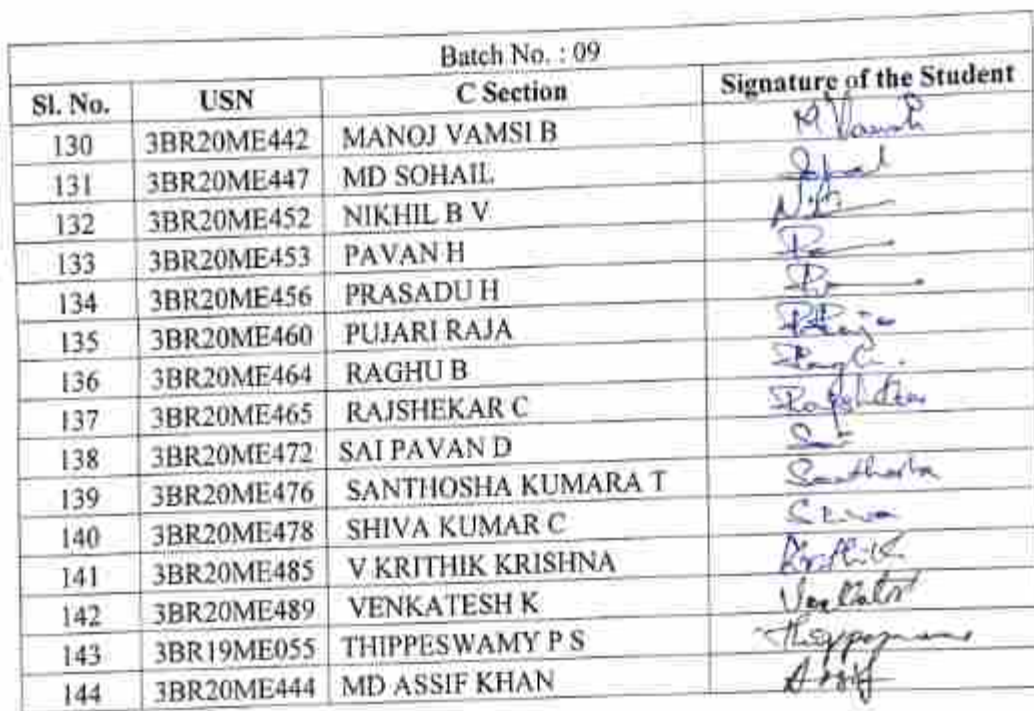 Batch No. : 09
Sl. No. USN C Section Signature of the Student
130 3BR20ME442 MANOJ VAMSI B M Vamsi
131 3BR20ME447 MD SOHAIL
132 3BR20ME452 NIKHIL B V
133 3BR20ME453 PAVAN H
134 3BR20ME456 PRASADU H
135 3BR20ME460 PUJARI RAJA P Raja
136 3BR20ME464 RAGHU B
137 3BR20ME465 RAJSHEKAR C
138 3BR20ME472 SAI PAVAN D
139 3BR20ME476 SANTHOSHA KUMARA T Santhosha
140 3BR20ME478 SHIVA KUMAR C
141 3BR20ME485 V KRITHIK KRISHNA
142 3BR20ME489 VENKATESH K
143 3BR19ME055 THIPPESWAMY P S
144 3BR20ME444 MD ASSIF KHAN